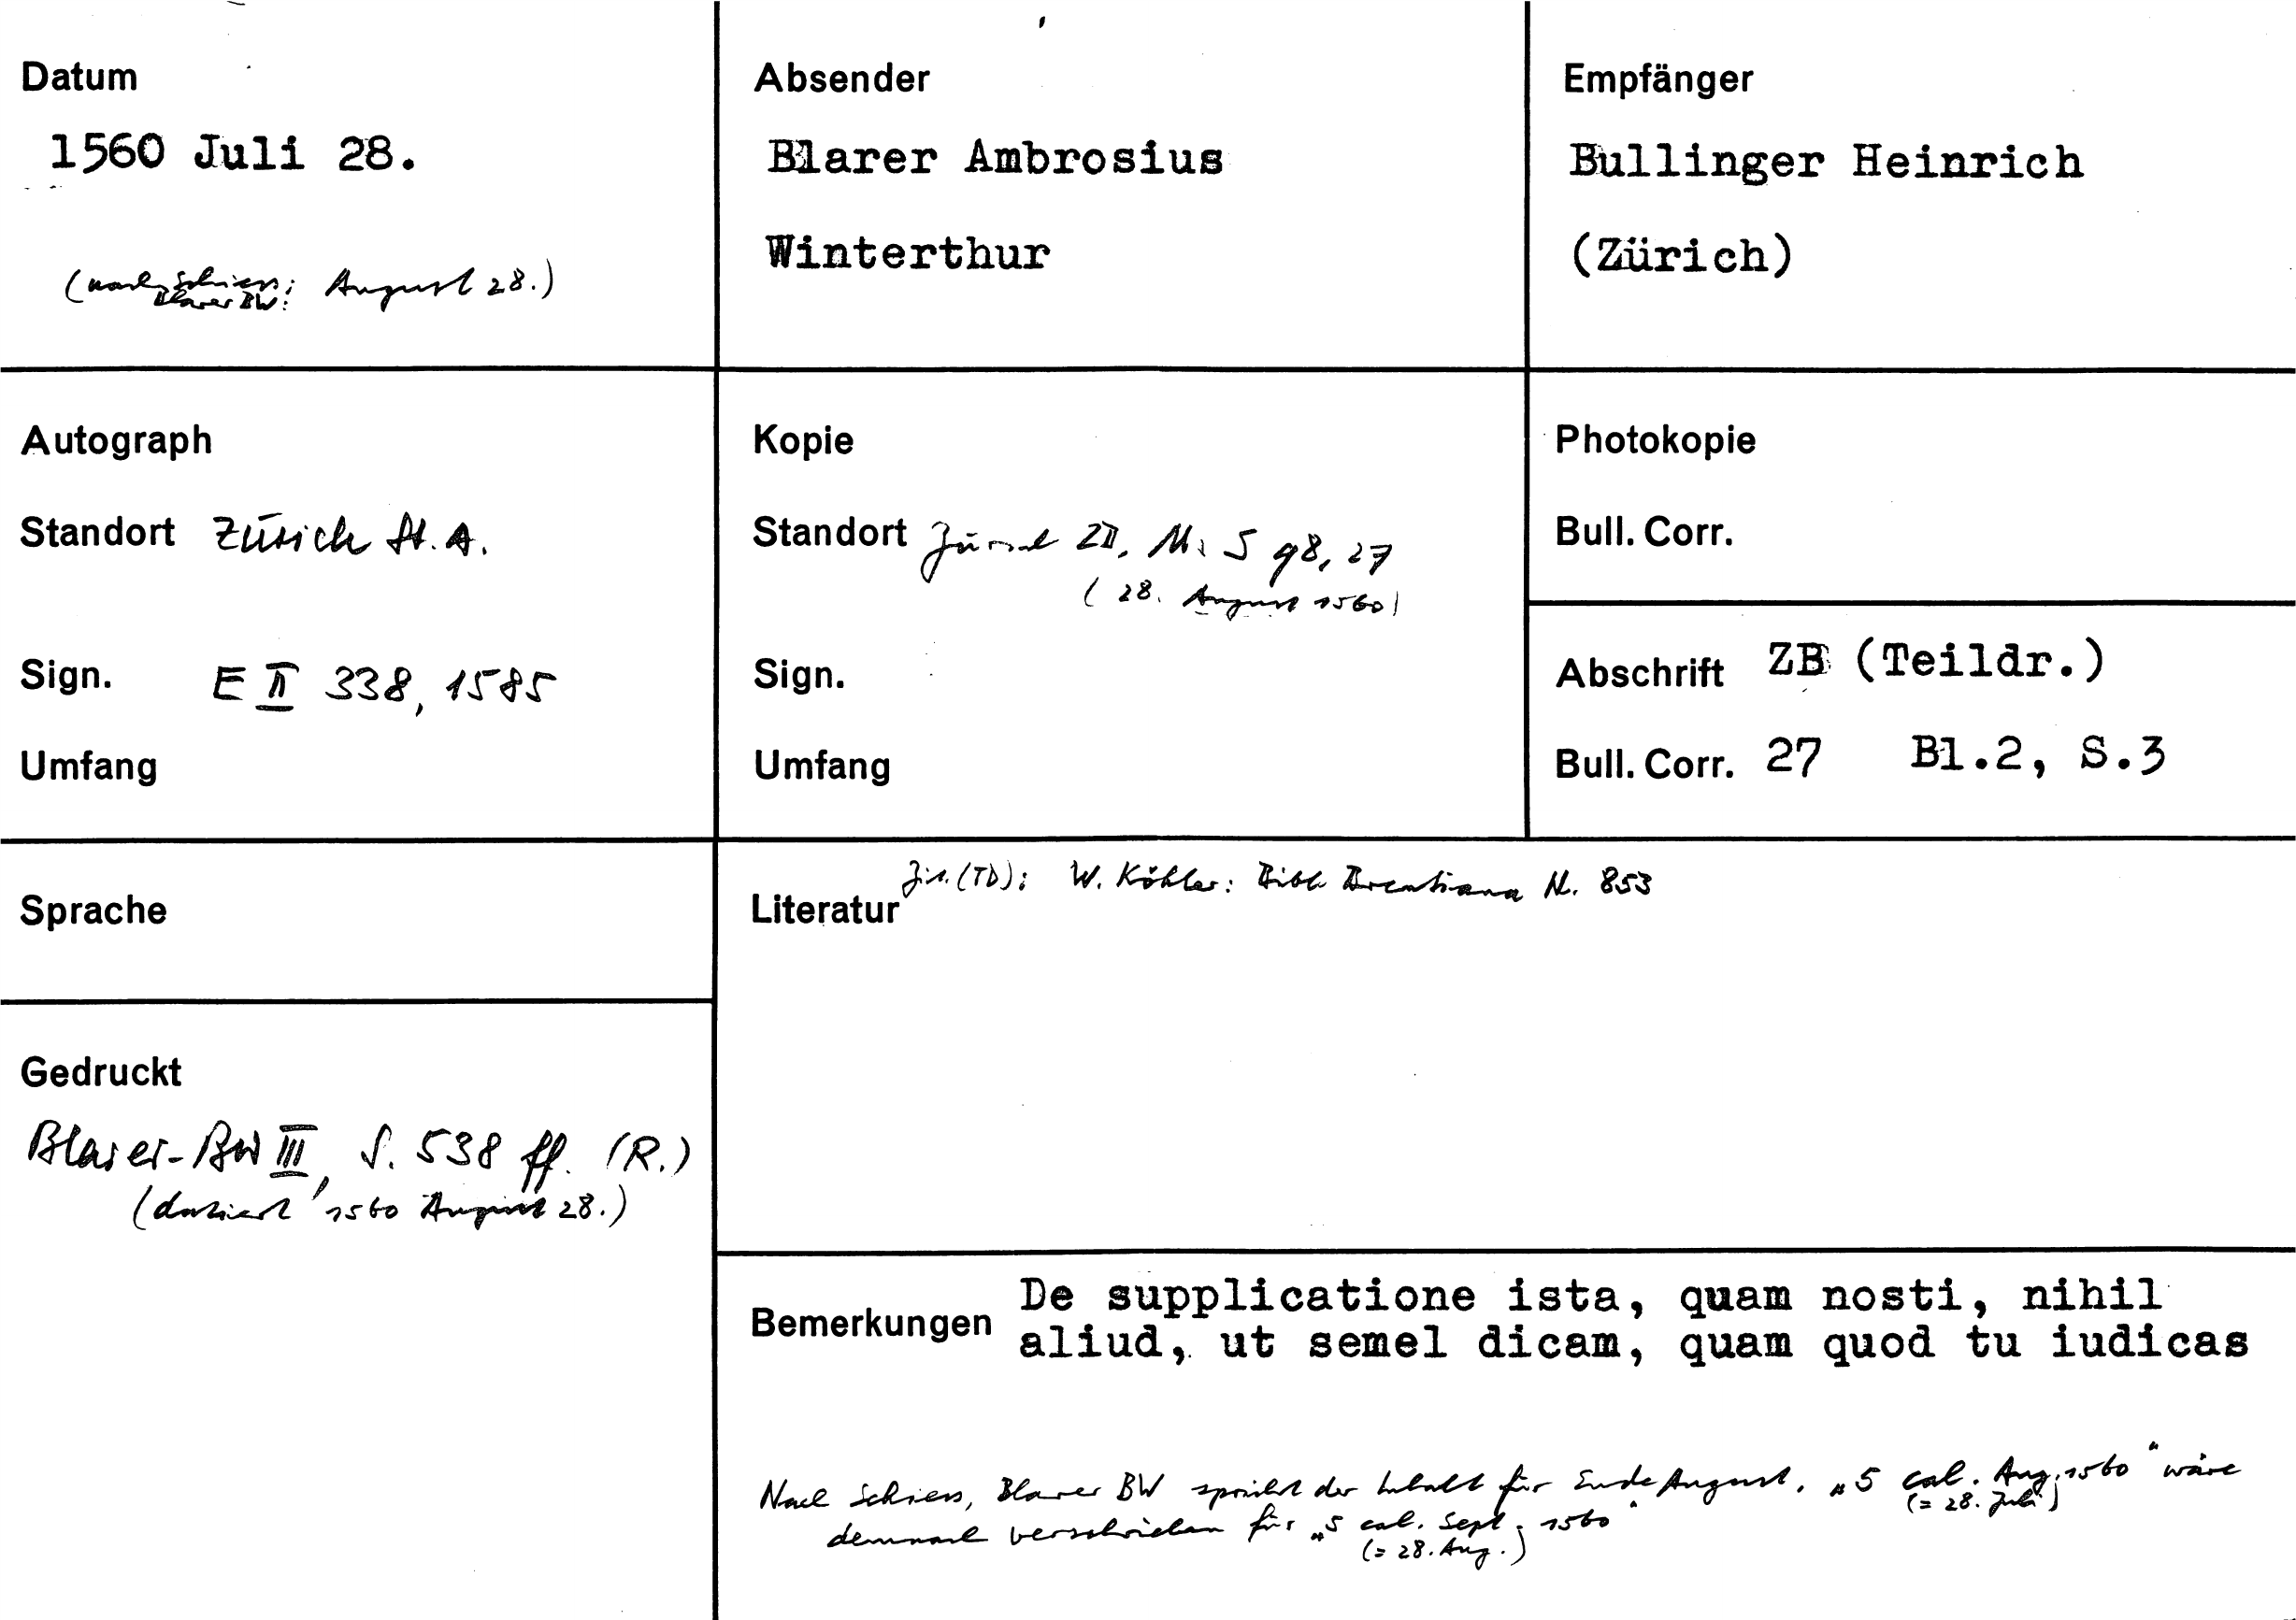 Datum
1560 Juli 28.
(nach Schiess;
Blarer BW: August 28.)
Absender
Blarer Ambrosius
Winterthur
Empfänger
Bullinger Heinrich
(Zürich)
Autograph
Standort Zürich St.A.
Sign. E II 338, 1585
Umfang
Kopie
Standort Zürich ZB, Ms S 98, 27
(28. August 1560)
Sign.
Umfang
Photokopie
Bull. Corr.
Abschrift ZB (Teildr.)
Bull. Corr. 27 Bl.2, S.3
Sprache
Literatur Zit. (TD): W. Köhler: Bibl. Brentiana Nr. 853
Gedruckt
Blarer-BW III, S. 538 ff. (R.)
(datiert 1560 August 28.)
Bemerkungen De supplicatione ista, quam nosti, nihil
aliud, ut semel dicam, quam quod tu iudicas
Nach Schiess, Blarer BW spricht der Inhalt für Ende August. "5 cal. Aug. 1560" wäre
(= 28. Juli)
demnach verschrieben für "5 cal. Sept. 1560"
(= 28. Aug.)